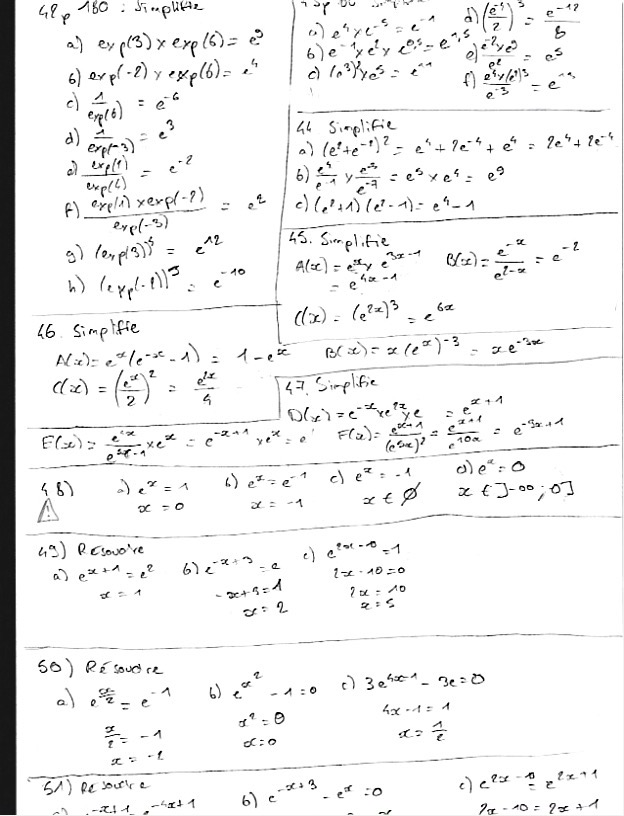 42 p 180 : Simplifie
a) exp(3) × exp(6) = e⁹
b) exp(-2) × exp(6) = e⁴
c) 1/exp(6) = e⁻⁶
d) 1/exp(-3) = e³
= e⁻²
f) exp(1) × exp(-2) / exp(-3) = e²
g) (exp(3))⁴ = e¹²
h) (exp(-2))⁵ = e⁻¹⁰
a) e⁴ × e⁻⁵ = e⁻¹
b) e⁻¹ × e² × e⁰·⁵ = e¹·⁵
c) × e⁵ = e¹¹
d) (e⁻⁴/2)³ = e⁻¹²/8
e) = e⁵
f) = e¹³
44 Simplifie
a) (e²+e⁻²)² = e⁴ + 2e⁻⁴ + e⁴ = 2e⁴ + 2e⁻⁴
b) = e⁵ × e⁴ = e⁹
c) (e²+1)(e²-1) = e⁴ - 1
45. Simplifie
A(x) = eˣ × e³ˣ⁻¹
= e⁴ˣ⁻¹
B(x) = e⁻ˣ/e²⁻ˣ = e⁻²
C(x) = (e²ˣ)³ = e⁶ˣ
46. Simplifie
A(x) = eˣ(e⁻ˣ - 1) = 1 - eˣ
B(x) = x(eˣ)⁻³ = xe⁻³ˣ
C(x) = (eˣ/2)² = e²ˣ/4
47. Simplifie
D(x) = e⁻ˣ × e²ˣ × e = eˣ⁺¹
E(x) = = e⁻ˣ⁺¹ × eˣ = e
F(x) = eˣ⁺¹/(e⁵ˣ)² = eˣ⁺¹/e¹⁰ˣ = e⁻⁹ˣ⁺¹
48)
a) eˣ = 1
x = 0
b) eˣ = e⁻¹
x = -1
c) eˣ = -1
x ∈ ∅
d) eˣ = 0
x ∈ ]-∞ ; 0]
49) Résoudre
a) eˣ⁺¹ = e²
x = 1
b) e⁻ˣ⁺³ = e
-x+3 = 1
x = 2
c) e²ˣ⁻¹⁰ = 1
2x - 10 = 0
2x = 10
x = 5
50) Résoudre
a) e^(x/2) = e⁻¹
x/2 = -1
x = -2
b) e^(x²) - 1 = 0
x² = 0
x = 0
c) 3e⁴ˣ⁻¹ - 3e = 0
4x - 1 = 1
x = 1/2
51) Résoudre
a) e⁻ˣ⁺¹ = e⁻⁴ˣ⁺¹
b) e⁻ˣ⁺³ - eˣ = 0
c) e²ˣ⁻¹⁰ = e²ˣ⁺¹
2x - 10 = 2x + 1